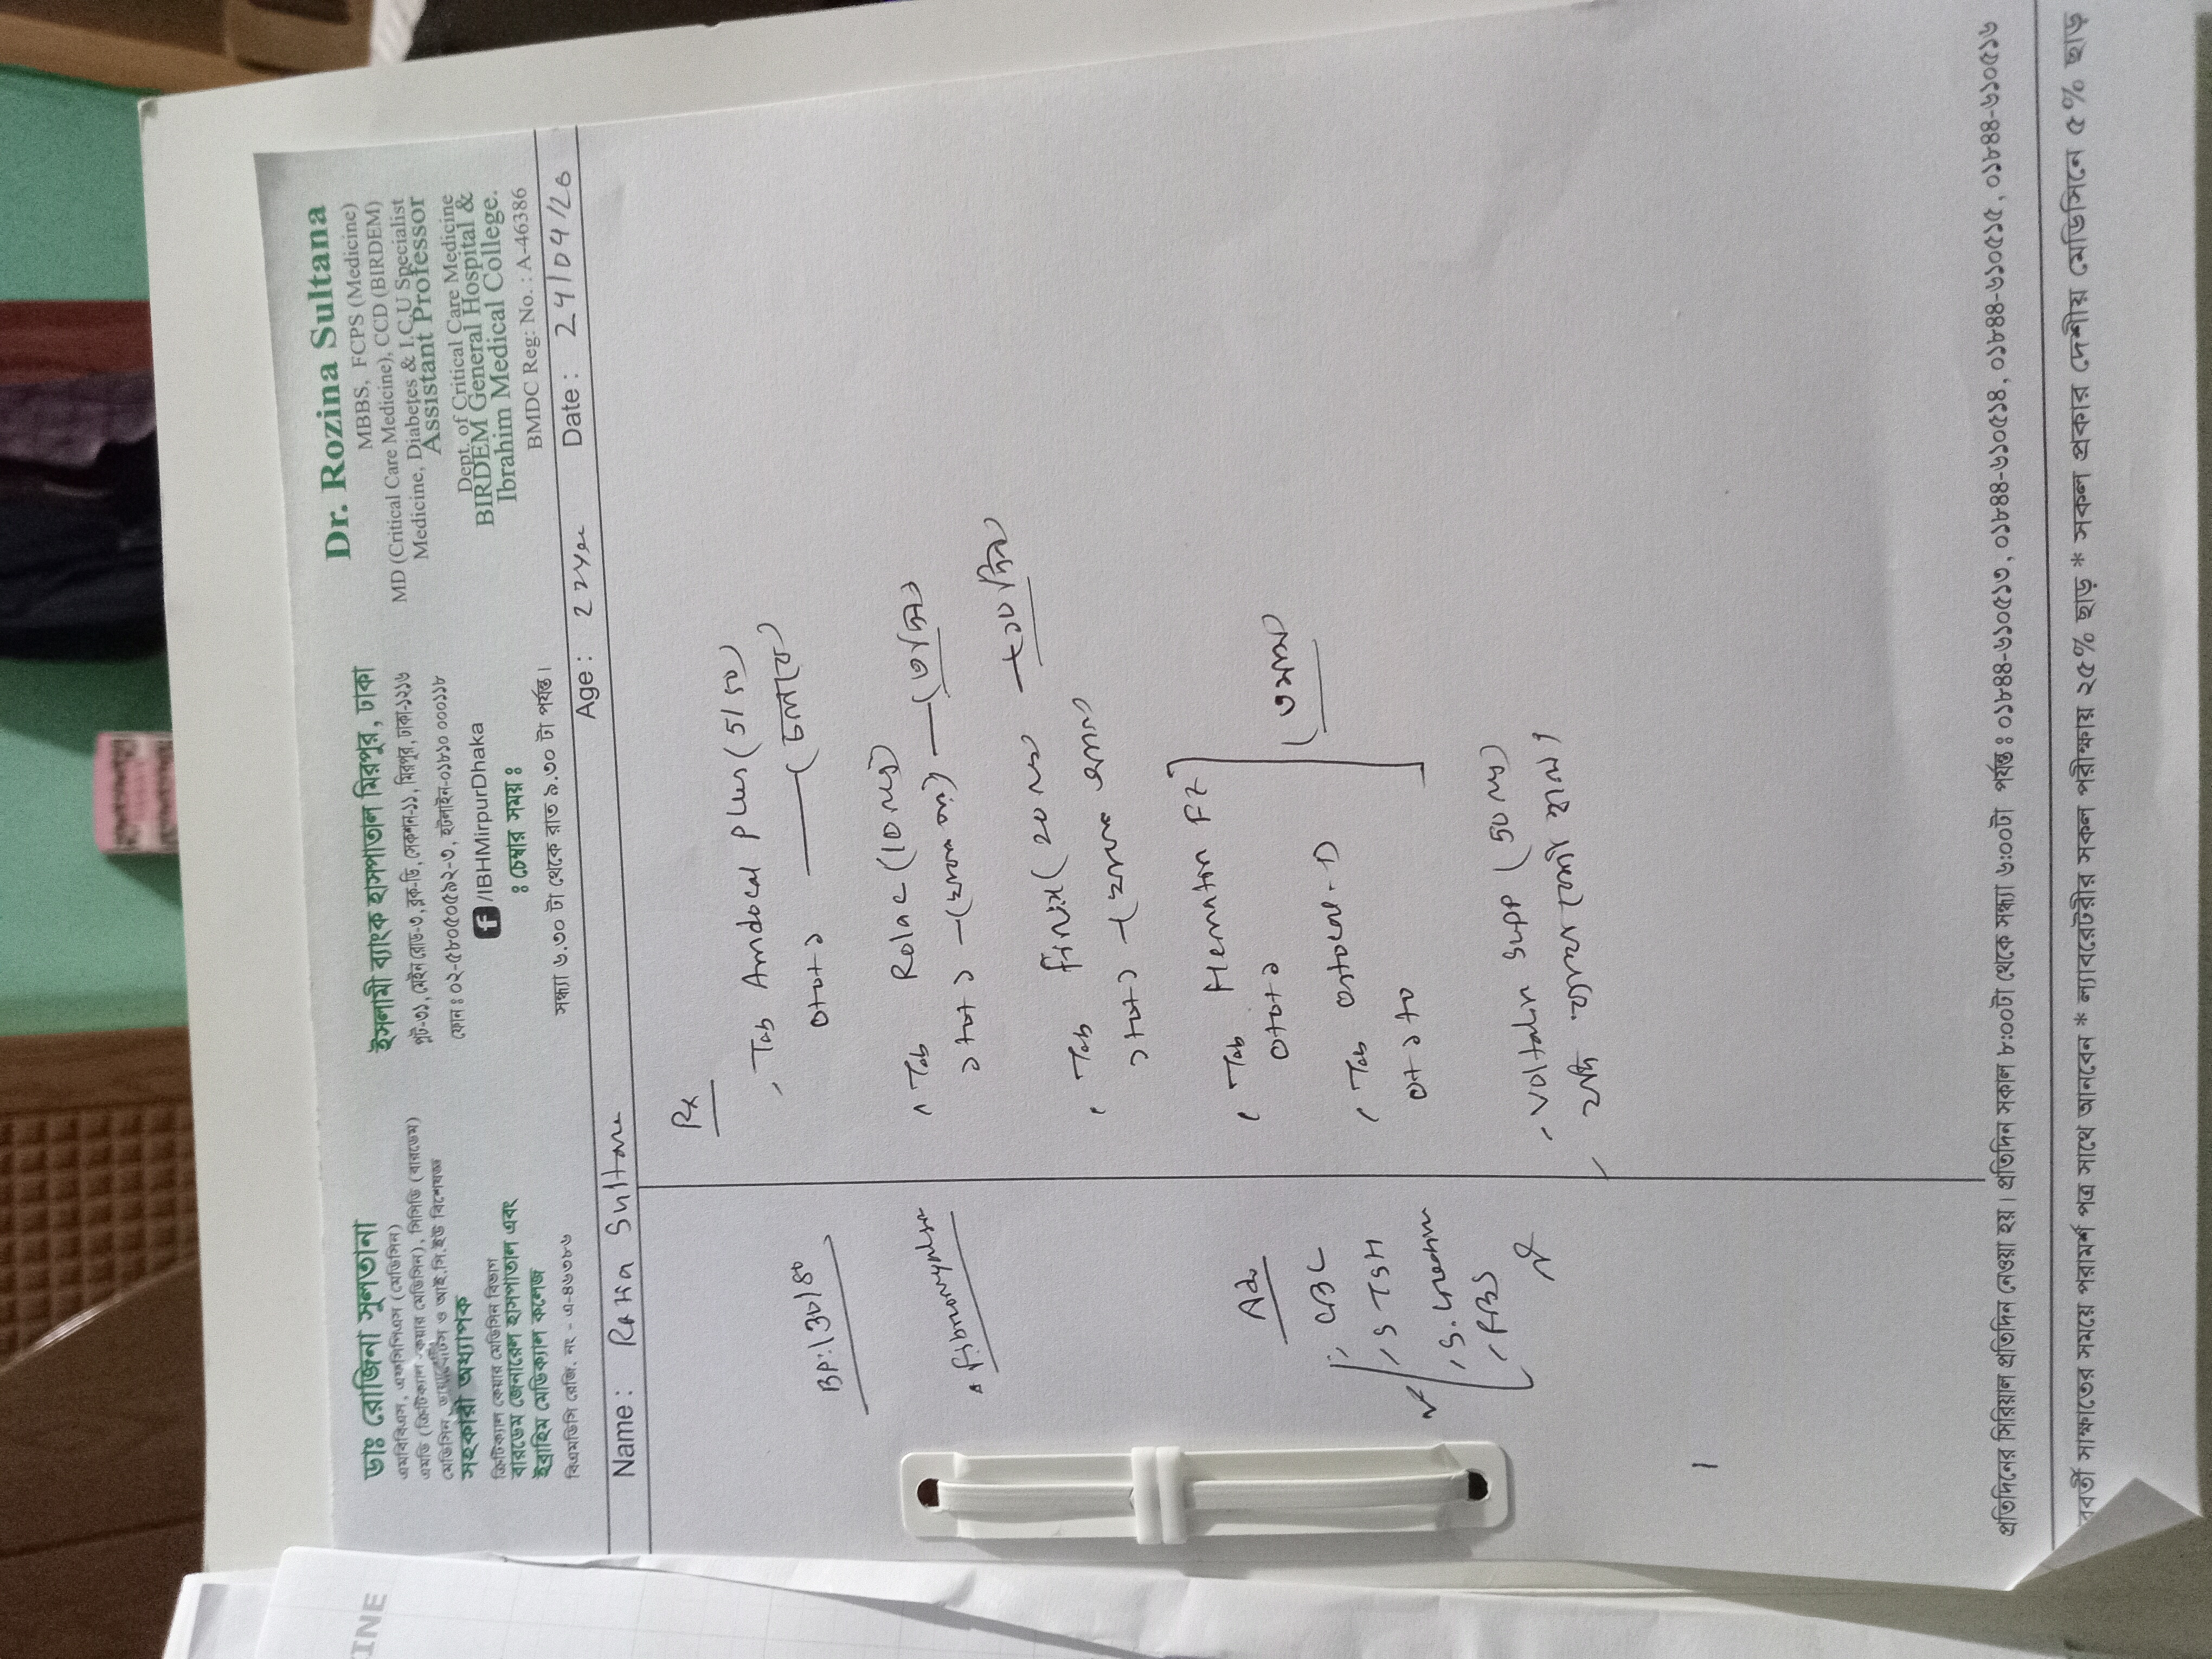 ডাঃ রোজিনা সুলতানা
এমবিবিএস, এফসিপিএস (মেডিসিন)
এমডি (ক্রিটিক্যাল কেয়ার মেডিসিন), সিসিডি (বারডেম)
মেডিসিন, ডায়াবেটিস ও আই.সি.ইউ বিশেষজ্ঞ
সহকারী অধ্যাপক
ক্রিটিক্যাল কেয়ার মেডিসিন বিভাগ
বারডেম জেনারেল হাসপাতাল এবং
ইব্রাহিম মেডিক্যাল কলেজ
বিএমডিসি রেজি. নং - এ-৪৬৩৮৬
ইসলামী ব্যাংক হাসপাতাল মিরপুর, ঢাকা
প্লট-৩১, মেইন রোড-৩, ব্লক-ডি, সেকশন-১১, মিরপুর, ঢাকা-১২১৬
ফোন: ০২-৫৮০৫০৫৯২-৩, হটলাইন-০১৮১০ ০০০১১৮
/IBHMirpurDhaka
: চেম্বার সময় :
সন্ধ্যা ৬.৩০ টা থেকে রাত ৯.৩০ টা পর্যন্ত।
Dr. Rozina Sultana
MBBS, FCPS (Medicine)
MD (Critical Care Medicine), CCD (BIRDEM)
Medicine, Diabetes & I.C.U Specialist
Assistant Professor
Dept. of Critical Care Medicine
BIRDEM General Hospital &
Ibrahim Medical College.
BMDC Reg: No. : A-46386
Name: Sultana Age: Date:
BP:
Adv
CBC
S TSH
S. Creatinin
FBS
Rx
Tab Amdocal Plus (5/50)
০+০+১ (চলবে)
Tab Rolac (10 mg)
১+০+১ (৩ দিন)
Tab Finix (20 mg) ১০ দিন
১+০+১
Tab Hematon FZ
০+০+১
Tab Ostocal-D
০+১+০
Voltalin Supp (50 mg)
যদি
প্রতিদিনের সিরিয়াল প্রতিদিন নেওয়া হয়। প্রতিদিন সকাল ৮:০০টা থেকে সন্ধ্যা ৬:০০টা পর্যন্ত : ০১৮৪৪-৬১০৫১৩, ০১৮৪৪-৬১০৫১৪, ০১৮৪৪-৬১০৫১৫, ০১৮৪৪-৬১০৫১৬
সাক্ষাতের সময়ে পরামর্শ পত্র সাথে আনবেন * ল্যাবরেটরীর সকল পরীক্ষায় ২৫% ছাড় * সকল প্রকার দেশীয় মেডিসিনে ৫% ছাড়